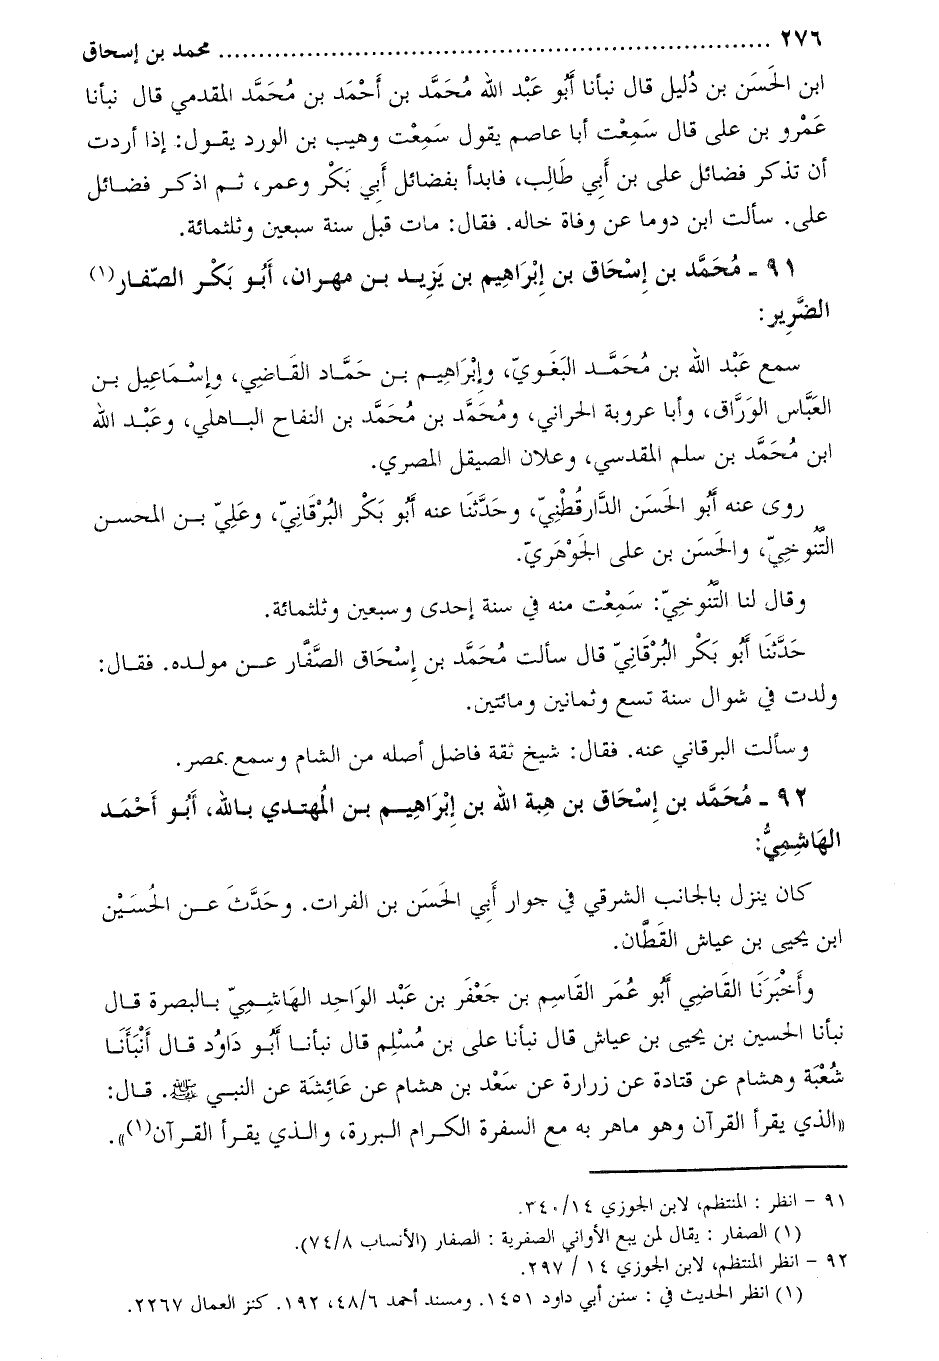 ٢٧٦ ..................................................................... محمد بن إسحاق
ابن الحَسَن بن دُليل قال نبأنا أَبُو عَبْد الله مُحَمَّد بن أَحْمَد بن مُحَمَّد المقدمي قال نبأنا
عَمْرو بن على قال سَمِعْت أبا عاصم يقول سَمِعْت وهيب بن الورد يقول: إذا أردت
أن تذكر فضائل على بن أَبي طَالِب، فابدأ بفضائل أَبي بَكْر وعمر، ثم اذكر فضائل
على. سألت ابن دوما عن وفاة خاله. فقال: مات قبل سنة سبعين وثلثمائة.
٩١ ـ مُحَمَّد بن إِسْحَاق بن إِبْرَاهِيم بن يَزِيد بن مهران، أَبُو بَكْر الصّفار(١)
الضَّرِير:
سمع عَبْد الله بن مُحَمَّد البَغَويّ، وإِبْرَاهِيم بن حَمَّاد القَاضِي، وإِسْمَاعِيل بن
العَبَّاس الوَرَّاق، وأبا عروبة الحراني، ومُحَمَّد بن مُحَمَّد بن النفاح الباهلي، وعَبْد الله
ابن مُحَمَّد بن سلم المقدسي، وعلان الصيقل المصري.
روى عنه أَبُو الحَسَن الدَّارقُطْنِيّ، وحَدَّثَنَا عنه أَبُو بَكْر البُرْقَانِيّ، وعَلِيّ بن المحسن
التَّنُوخِيّ، والحَسَن بن على الجَوْهَرِيّ.
وقال لنا التَّنُوخِيّ: سَمِعْت منه في سنة إحدى وسبعين وثلثمائة.
حَدَّثَنَا أَبُو بَكْر البُرْقَانِيّ قال سألت مُحَمَّد بن إِسْحَاق الصَّفَّار عن مولده. فقال:
ولدت في شوال سنة تسع وثمانين ومائتين.
وسألت البرقاني عنه. فقال: شيخ ثقة فاضل أصله من الشام وسمع بمصر.
٩٢ ـ مُحَمَّد بن إِسْحَاق بن هبة الله بن إِبْرَاهِيم بن المُهتدي بالله، أَبُو أَحْمَد
الهَاشِمِيُّ:
كان ينزل بالجانب الشرقي في جوار أَبي الحَسَن بن الفرات. وحَدَّثَ عن الحُسَيْن
ابن يحيى بن عياش القَطَّان.
وأَخْبَرَنَا القَاضِي أَبُو عُمَر القَاسِم بن جَعْفَر بن عَبْد الوَاحِد الهَاشِمِيّ بالبصرة قال
نبأنا الحسين بن يحيى بن عياش قال نبأنا على بن مُسْلِم قال نبأنا أَبُو دَاوُد قال أَنْبَأَنَا
شُعْبَة وهشام عن قتادة عن زرارة عن سَعْد بن هشام عن عَائِشَة عن النبي ﷺ. قال:
«الذي يقرأ القرآن وهو ماهر به مع السفرة الكرام البررة، والذي يقرأ القرآن(١)».
٩١ - انظر : المنتظم، لابن الجوزي ٣٤٠/١٤.
(١) الصفار : يقال لمن يبع الأواني الصفرية : الصفار (الأنساب ٧٤/٨).
٩٢ - انظر المنتظم، لابن الجوزي ١٤ / ٢٩٧.
(١) انظر الحديث في : سنن أبي داود ١٤٥١. ومسند أحمد ٤٨/٦، ١٩٢. كنز العمال ٢٢٦٧.